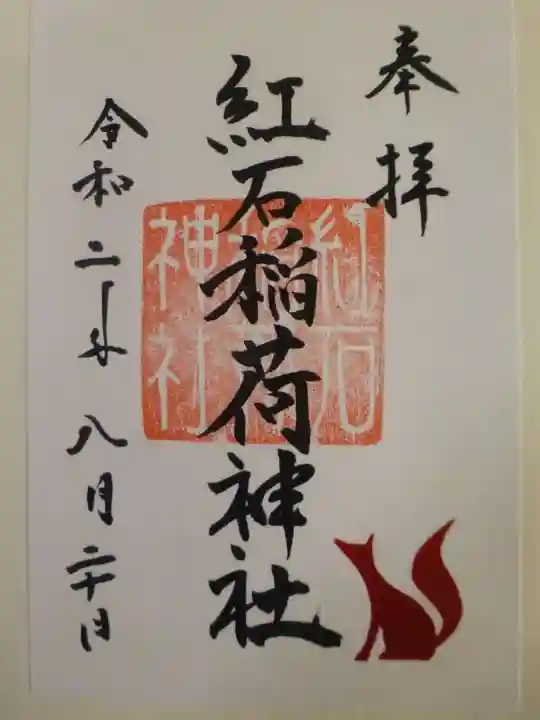 奉拝
紅石稲荷神社
令和二年八月二十日
紅石
稲荷
神社